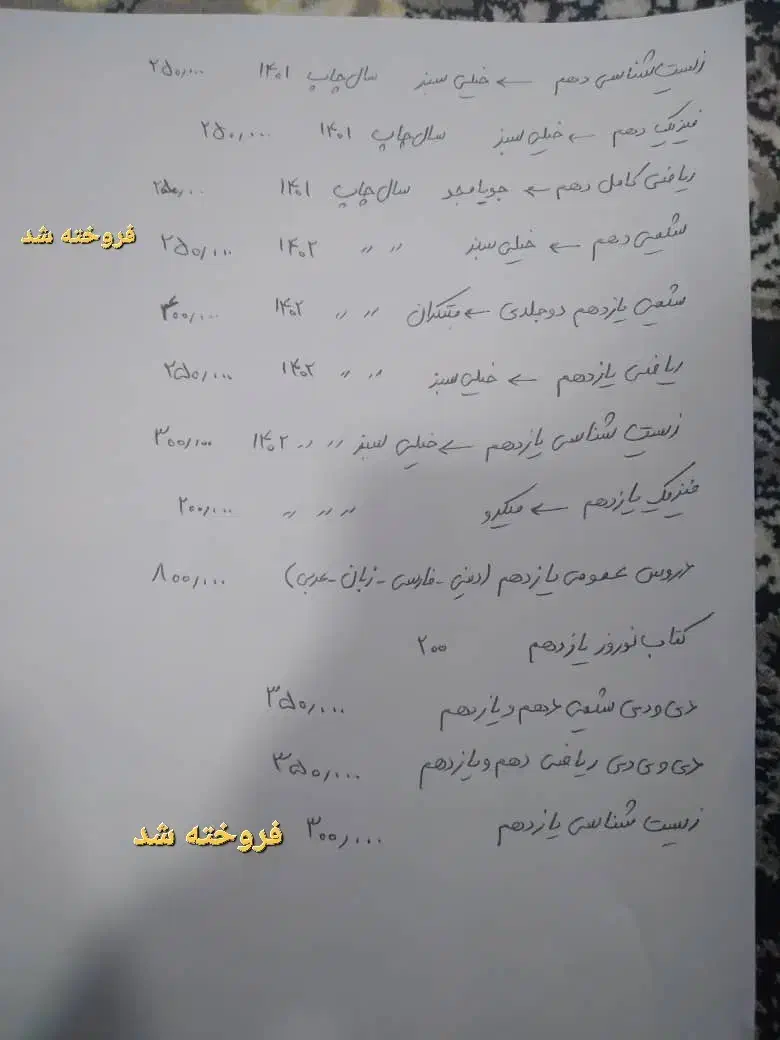 زیست شناسی دهم ← خیلی سبز سال چاپ ۱۴۰۱ ۲۵۰,۰۰۰
فیزیک دهم ← خیلی سبز سال چاپ ۱۴۰۱ ۲۵۰,۰۰۰
ریاضی کامل دهم ← جویا مجد سال چاپ ۱۴۰۱ ۲۵۰,۰۰۰
شیمی دهم ← خیلی سبز 〃 〃 ۱۴۰۲ ۲۵۰,۰۰۰ فروخته شد
شیمی یازدهم دو جلدی ← مبتکران 〃 〃 ۱۴۰۲ ۴۰۰,۰۰۰
ریاضی یازدهم ← خیلی سبز 〃 〃 ۱۴۰۲ ۲۵۰,۰۰۰
زیست شناسی یازدهم ← خیلی سبز 〃 〃 ۱۴۰۲ ۳۰۰,۰۰۰
فیزیک یازدهم ← میکرو 〃 〃 〃 ۲۰۰,۰۰۰
دروس عمومی یازدهم (دینی - فارسی - زبان - عربی) ۸۰۰,۰۰۰
کتاب نوروز یازدهم ۲۰۰
دی وی دی شیمی دهم و یازدهم ۳۵۰,۰۰۰
دی وی دی ریاضی دهم و یازدهم ۳۵۰,۰۰۰
زیست شناسی یازدهم ۳۰۰,۰۰۰ فروخته شد